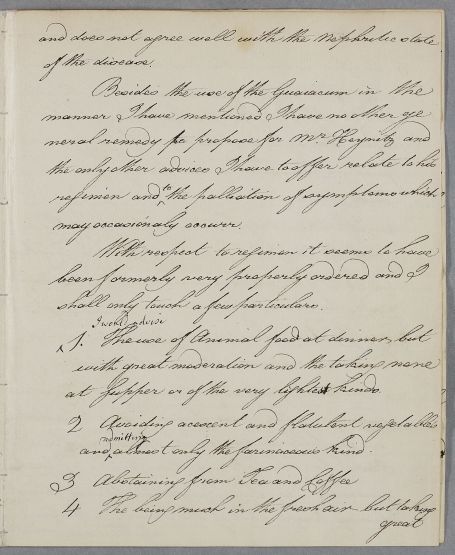 and does not agree well with the Nephritic state
of the disease.
Besides the use of the Guaiacum in the
manner I have mentioned I have no other ge
neral remedy to propose for Mr. Heynitz and
the only other advices I have to offer relate to his
regimen and to the palliation of symptoms which
may occasionaly occurr.
With respect to regimen it seems to have
been formerly very properly ordered and I
shall only touch a few particulars.
I would advise
1. The use of Animal food at dinner, but
with great moderation and the taking none
at Supper or of the very lightest kinds.
2 Avoiding acescent and flatulent vegetables
admitting
and almost only the farinaceous kind.
3 Abstaining from Tea and Coffee
4 The being much in the fresh air but taking
great